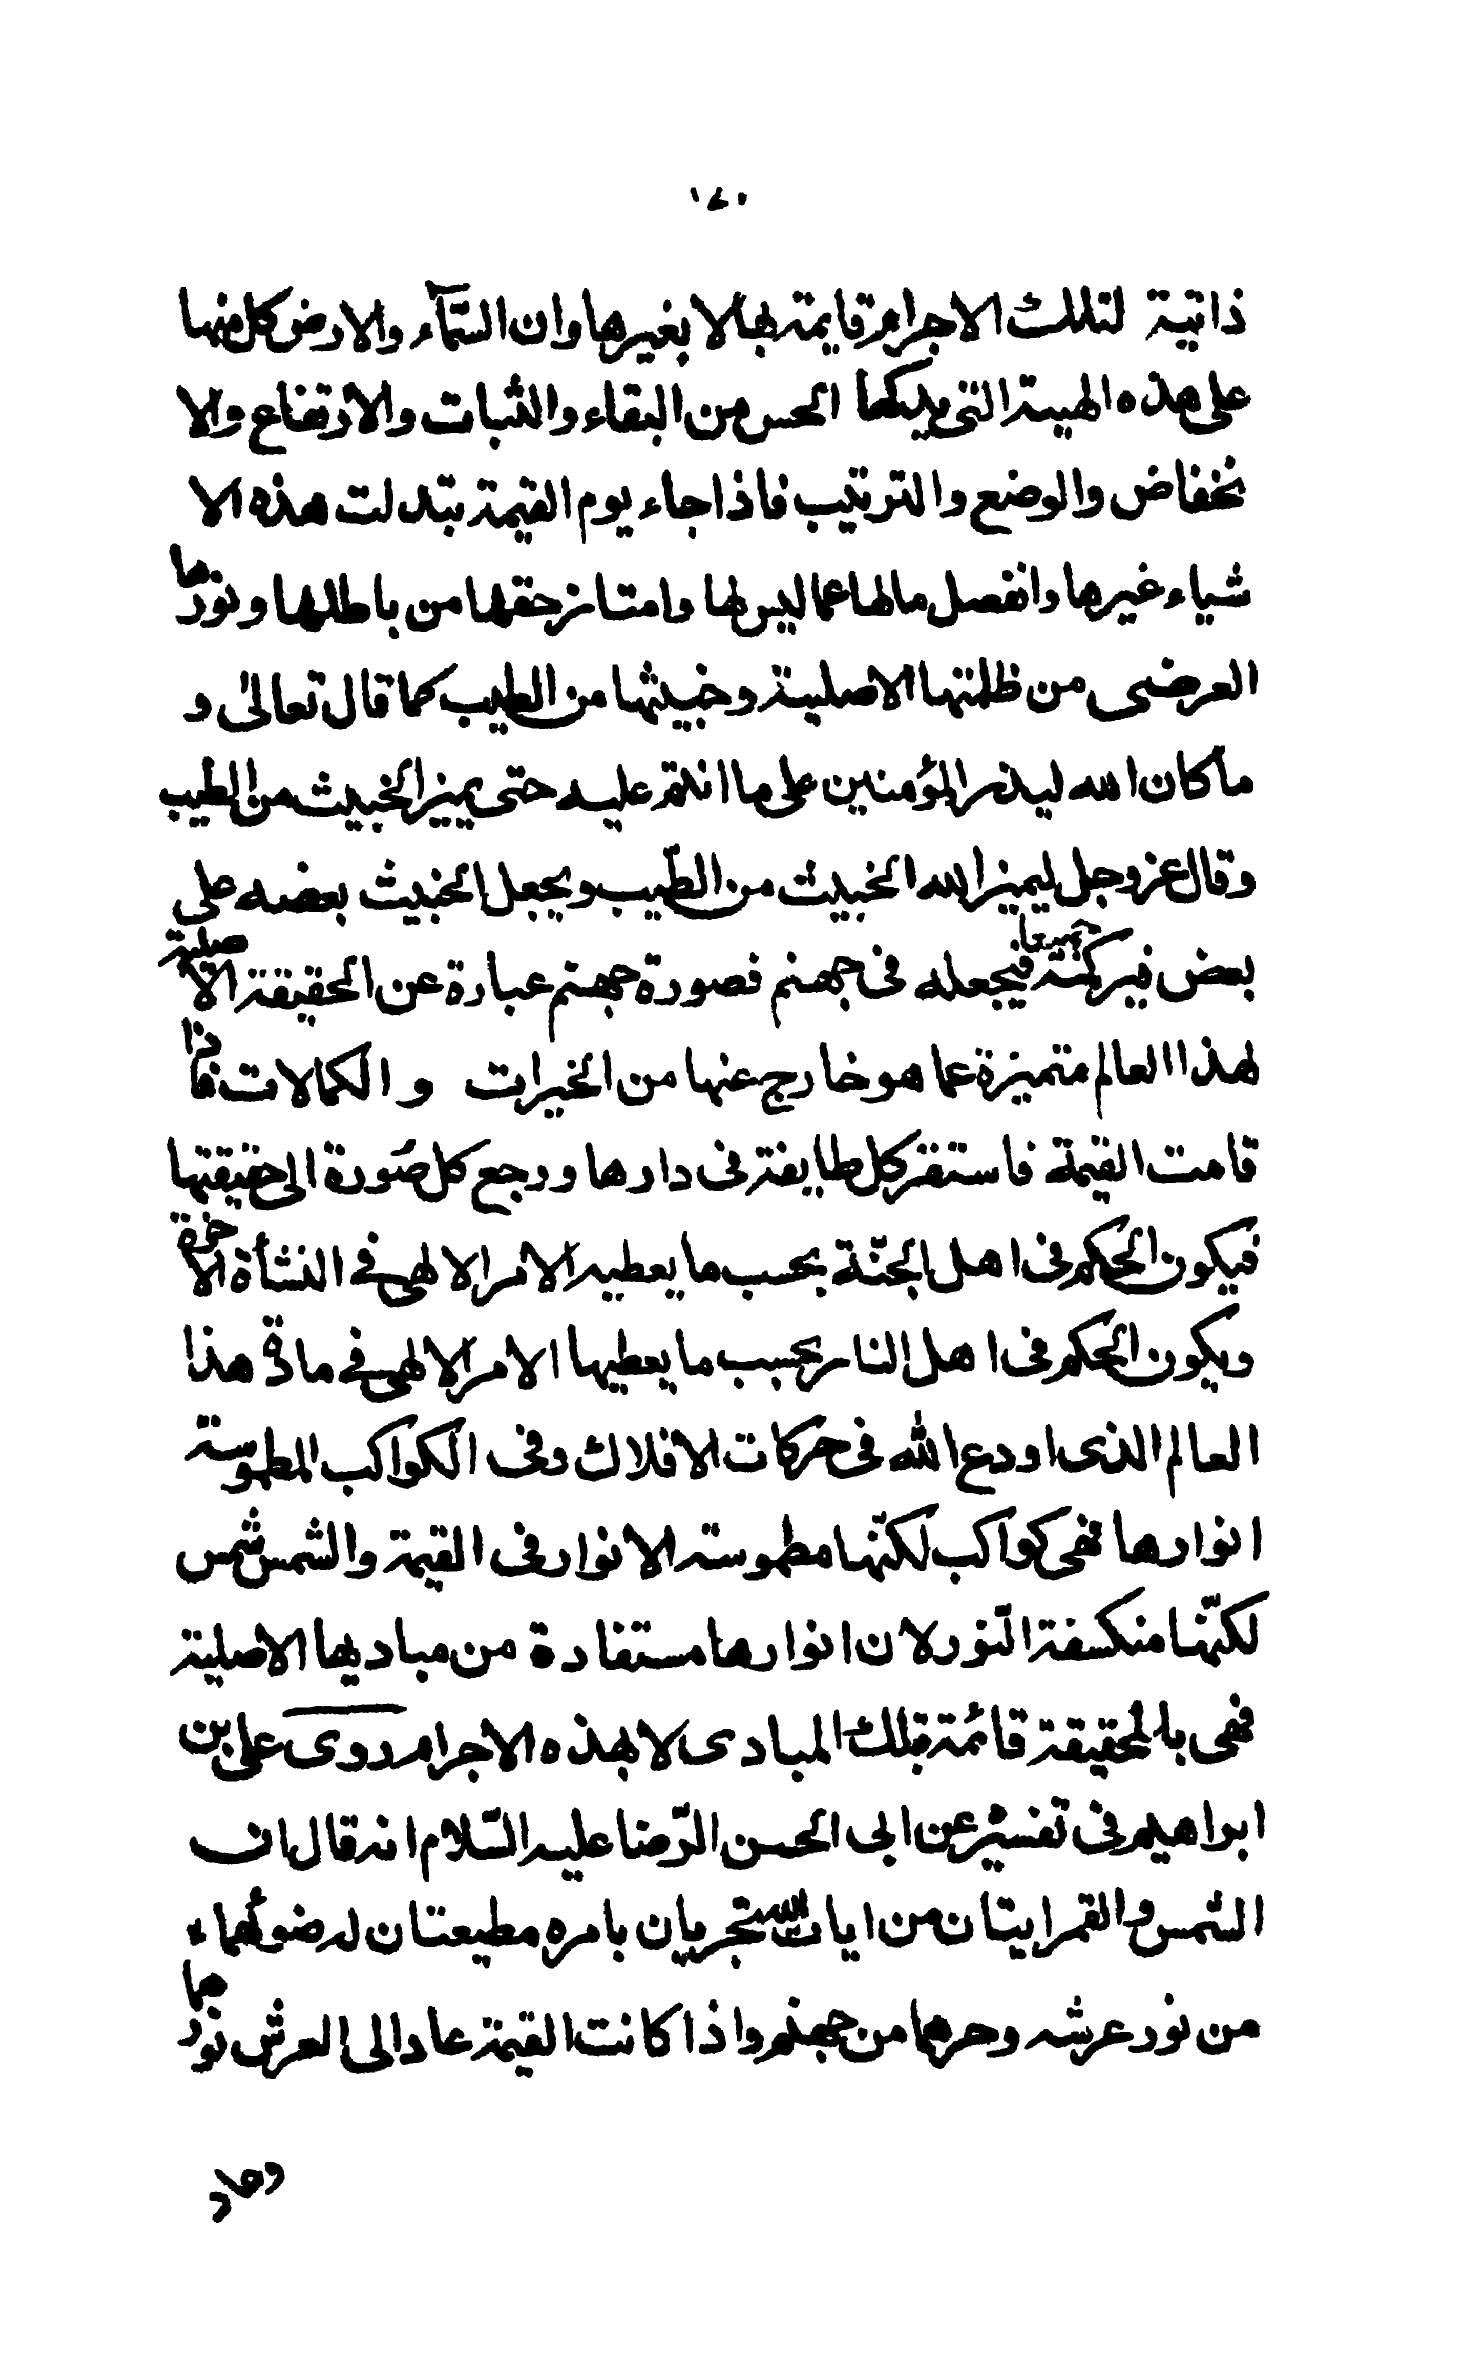 ١٤٠
ذاتية لتلك الاجرام قايمة بها لا بغيرها وان السّمآء والارض كل منها
على هذه الهيئة التي يدركها الحس من البقاء والثبات والارتفاع والا
نخفاض والوضع والترتيب فاذا جاء يوم القيمة تبدلت هذه الا
شياء غيرها وانفصل مالها عما ليس لها وامتاز حقها من باطلها ونورها
العرضى من ظلمتها الاصلية وخبيثها من الطيب كما قال تعالىٰ و
ما كان الله ليذر المؤمنين على ما انتم عليه حتى يميز الخبيث من الطيب
وقال عز وجل ليميز الله الخبيث من الطّيب ويجعل الخبيث بعضه على
بعض فيركمه جميعا فيجعله فى جهنم فصورة جهنم عبارة عن الحقيقة الاصلية
لهذا العالم متميزة عما هو خارج عنها من الخيرات والكمالات فاذا
قامت القيمة فاستقر كل طايفة فى دارها ورجع كل صُورة الى حقيقتها
فيكون الحكم فى اهل الجنّة بحسب ما يعطيه الامر الالهى فى النشأة الاخرة
ويكون الحكم فى اهل النار بحسب ما يعطيها الامر الالهى فى مادة هذا
العالم الذى اودع الله فى حركات الافلاك وفى الكواكب المطموسة
انوارها فهى كواكب لكنّها مطموسة الانوار فى القيمة والشمس شمس
لكنّها منكسفة النّور لان انوارها مستفادة من مباديها الاصلية
فهى بالحقيقة قائمة بتلك المبادى لا بهذه الاجرام روى على بن
ابراهيم فى تفسيره عن ابى الحسن الرّضا عليه السّلام انه قال ان
الشمس والقمر ايتان من ايات الله تجريان بامره مطيعتان له ضوأهماء
من نور عرشه وحرهما من جهنم واذا كانت القيمة عاد الى العرش نورهما
وعاد